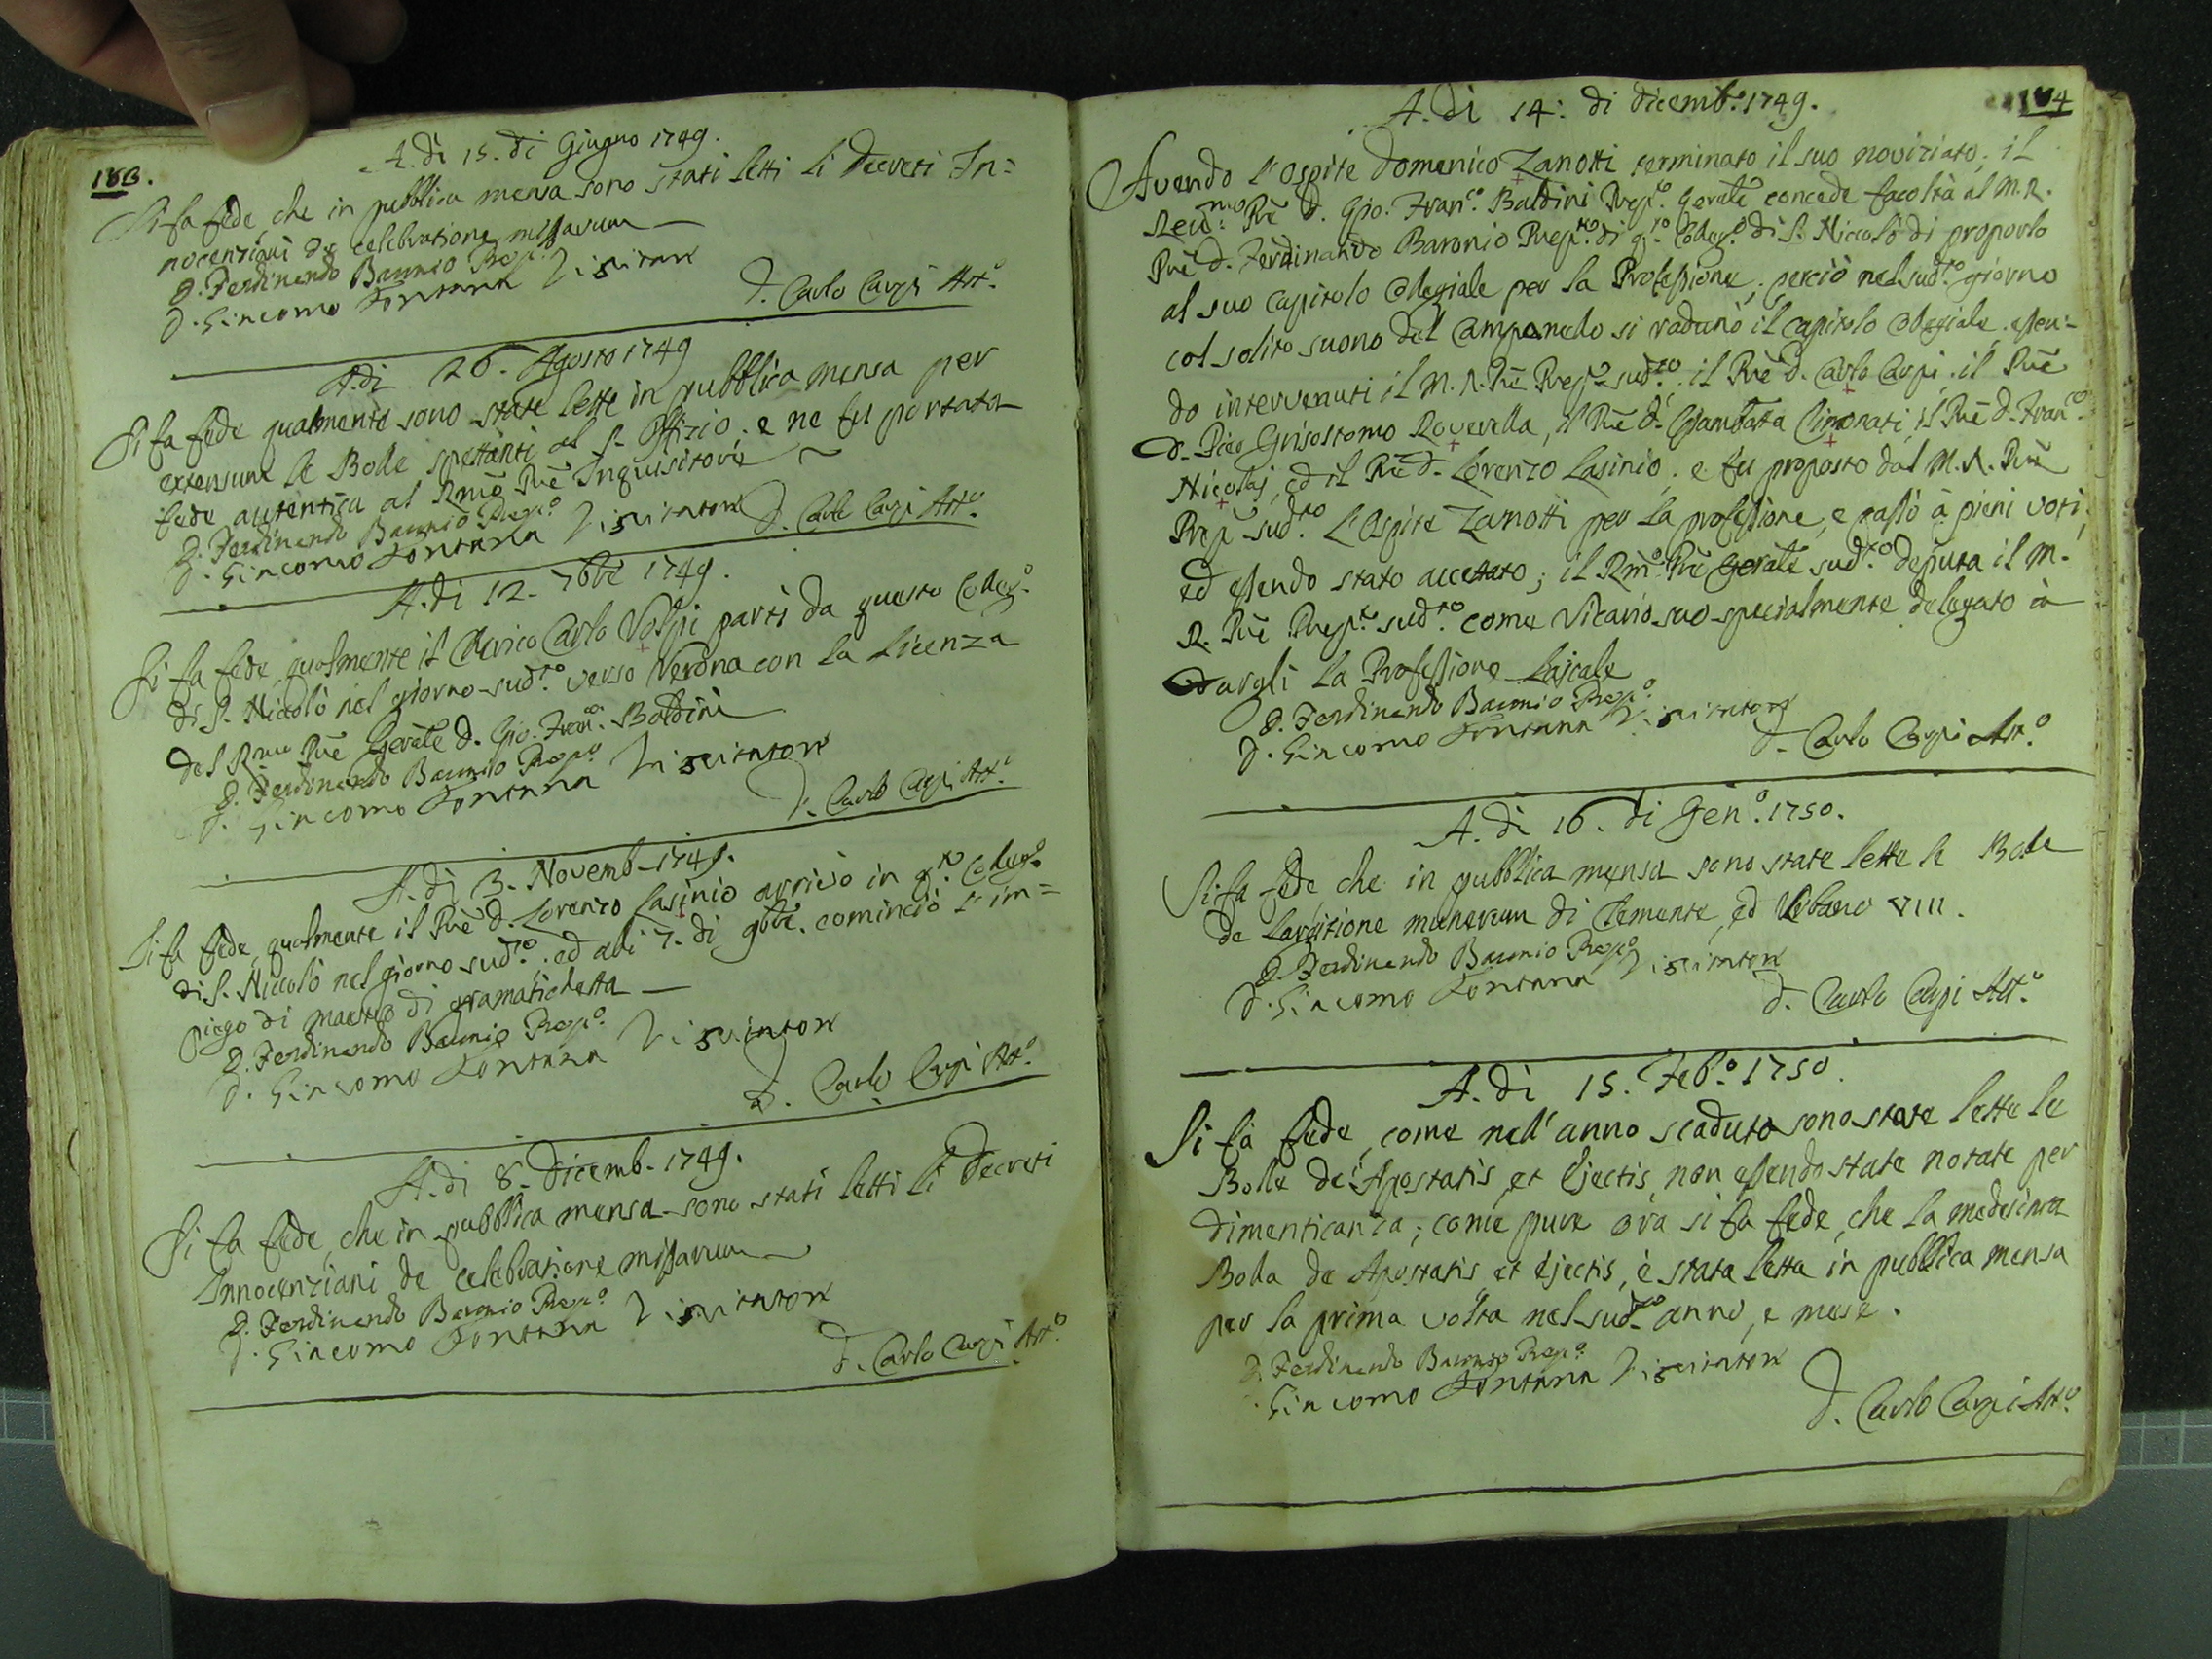 183.
A. dì 15. di Giugno 1749.
Si fa fede, che in pubblica mensa sono stati letti li Decreti In=
nocenziani de celebratione missarum
D. Ferdinando Baronio Prepᵒ.
D. Giacomo Fontana Visitatore
D. Carlo Carpi Attᵒ.
A di 26. Agosto 1749
Si fa fede qualmente sono state lette in pubblica mensa per
extensum le Bolle spettanti al S. Offizio, e ne fu portata
fede autentica al Rmo Prē Inquisitore
D. Ferdinando Baronio Prepᵒ.
D. Giacomo Fontana Visitatore
D. Carlo Carpi Attᵒ.
A. di 12. 7bre 1749.
Si fa fede, qualmente il Chierico Carlo Volpi partì da questo Collegᵒ.
di S. Niccolò nel giorno sudᵗᵒ. verso Verona con la licenza
del Rmo Prē Gerale D. Gio. Franᶜᵒ. Baldini
D. Ferdinando Baronio Prepᵒ.
D. Giacomo Fontana Visitatore
D. Carlo Carpi Attᵒ.
A. dì 3. Novemb. 1749.
Si fa fede, qualmente il Prē D. Lorenzo Lasinio arrivò in qᵗᵒ. Collegᵒ.
di S. Niccolò nel giorno sudᵒ. ed alli 7. di 9bre. cominciò l'im=
piego di maestro di gramatichetta
D. Ferdinando Baronio Prepᵒ.
D. Giacomo Fontana Visitatore
D. Carlo Carpi Attᵒ.
A. di 8. Dicemb. 1749.
Si fa fede, che in pubblica mensa sono stati letti li Decreti
Innocenziani de celebratione missarum
D. Ferdinando Baronio Prepᵒ.
D. Giacomo Fontana Visitatore
D. Carlo Carpi Attᵒ.
184
A. dì 14: di dicembᵉ. 1749.
Avendo l'Ospite Domenico Zanotti terminato il suo noviziato, il
Revᵐᵒ: Prē D. Gio. Franᶜᵒ. Baldini Prepᵗᵒ. Gerale concede facoltà al M. R.
Prē D. Ferdinando Baronio Prepᵗᵒ. di qᵗᵒ. Collegᵒ. di S. Niccolò di proporlo
al suo capitolo collegiale per la Professione, perciò nel sudᵗᵒ. giorno
col solito suono del campanello si radunò il capitolo collegiale, essen=
do intervenuti il M. R. Prē Prepᵗᵒ sudᵗᵒ. il Prē D. Carlo Carpi, il Prē
D. Pico Grisostomo Roverella, il Prē D. Giambatta Cimorati, il Prē D. Franᶜᵒ.
Nicolaj, ed il Prē D. Lorenzo Lasinio, e fu proposto dal M. R. Prē
Prepᵗᵒ sudᵗᵒ. l'Ospite Zanotti per la professione, e passò à pieni voti,
ed essendo stato accettato; il Rmᵒ. Prē Gerale sudᵗᵒ. deputa il M.
R. Prē Prepᵗᵒ. sudᵗᵒ. come Vicario suo specialmente delegato à
dargli la Professione Laicale
D. Ferdinando Baronio Prepᵒ.
D. Giacomo Fontana Visitatore
D. Carlo Carpi Attᵒ.
A. dì 16. di Genᵒ. 1750.
Si fa fede, che in pubblica mensa sono state lette le Bolle
de largitione munerum di Clemente, ed Urbano VIII.
D. Ferdinando Baronio Prepᵒ.
D. Giacomo Fontana Visitatore
D. Carlo Carpi Attᵒ.
A. dì 15. Febᵒ. 1750.
Si fà fede, come nell'anno scaduto sono state lette le
Bolle de Apostatis, et Ejectis, non essendo state notate per
dimenticanza; come pure ora si fa fede, che la medesima
Bolla de Apostatis et Ejectis, è stata letta in pubblica mensa
per la prima volta nel sudᵗᵒ anno, e mese.
D. Ferdinando Baronio Prepᵒ.
D. Giacomo Fontana Visitatore
D. Carlo Carpi Attᵒ.